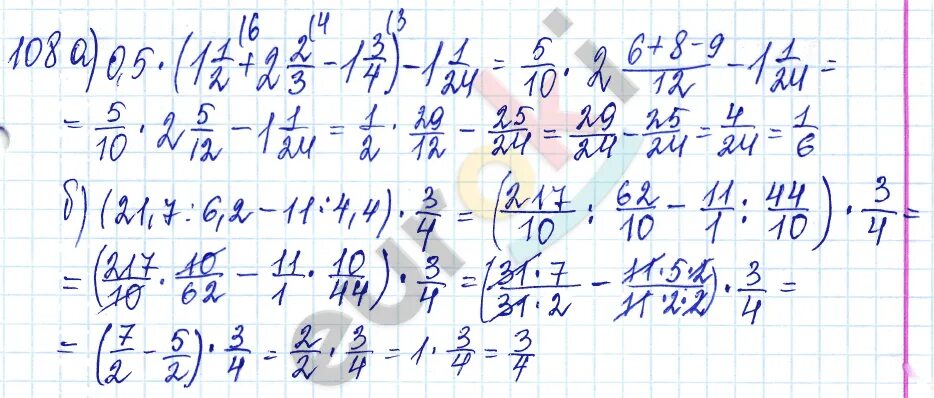 108 а) 0,5 · (1 1/2 + 2 2/3 - 1 3/4) - 1 1/24 = 5/10 · 2 (6+8-9)/12 - 1 1/24 =
= 5/10 · 2 5/12 - 1 1/24 = 1/2 · 29/12 - 25/24 = 29/24 - 25/24 = 4/24 = 1/6
б) (21,7 : 6,2 - 11 : 4,4) · 3/4 = (217/10 : 62/10 - 11/1 : 44/10) · 3/4 =
= (217/10 · 10/62 - 11/1 · 10/44) · 3/4 = (31·7/31·2 - 11·5·2/11·2·2) · 3/4 =
= (7/2 - 5/2) · 3/4 = 2/2 · 3/4 = 1 · 3/4 = 3/4
euroki